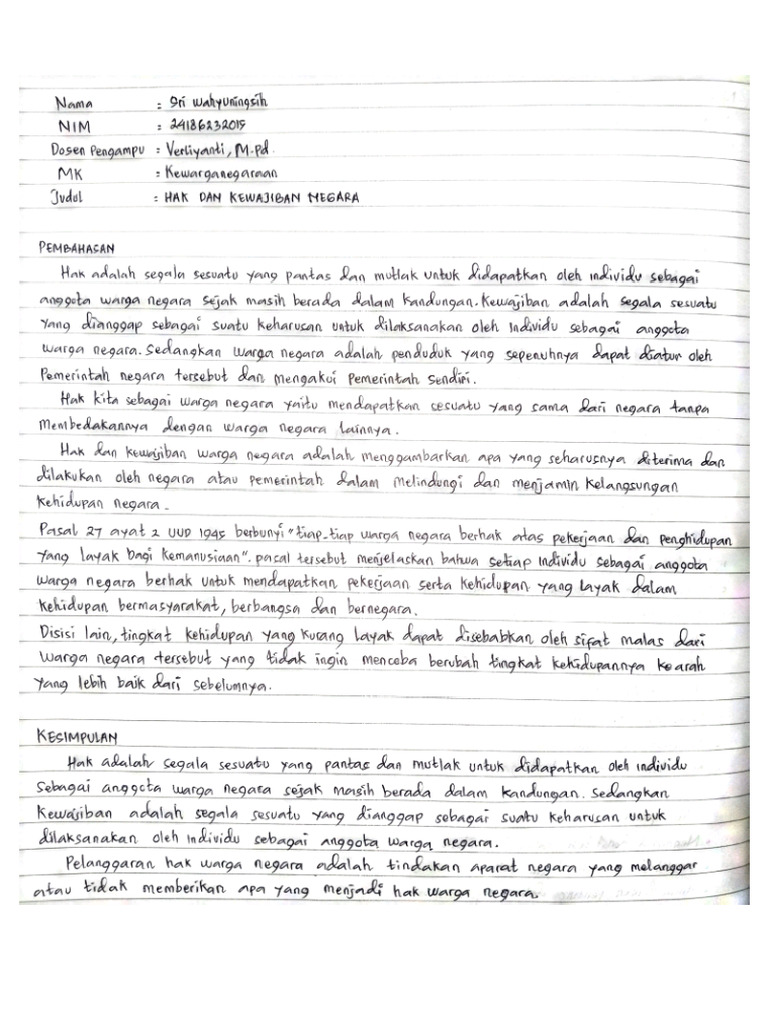 Nama : Sri Wahyuningsih
NIM : 24186232015
Dosen Pengampu : Verliyanti, M.Pd.
MK : Kewarganegaraan
Judul : HAK DAN KEWAJIBAN NEGARA
PEMBAHASAN
Hak adalah segala sesuatu yang pantas dan mutlak untuk didapatkan oleh individu sebagai
anggota warga negara sejak masih berada dalam kandungan. Kewajiban adalah segala sesuatu
yang dianggap sebagai suatu keharusan untuk dilaksanakan oleh individu sebagai anggota
warga negara. Sedangkan warga negara adalah penduduk yang sepenuhnya dapat diatur oleh
Pemerintah negara tersebut dan mengakui Pemerintah sendiri.
Hak kita sebagai warga negara yaitu mendapatkan sesuatu yang sama dari negara tanpa
membedakannya dengan warga negara lainnya.
Hak dan kewajiban warga negara adalah menggambarkan apa yang seharusnya diterima dan
dilakukan oleh negara atau pemerintah dalam melindungi dan menjamin kelangsungan
kehidupan negara.
Pasal 27 ayat 2 UUD 1945 berbunyi "tiap-tiap warga negara berhak atas pekerjaan dan penghidupan
yang layak bagi kemanusiaan". pasal tersebut menjelaskan bahwa setiap individu sebagai anggota
warga negara berhak untuk mendapatkan pekerjaan serta kehidupan yang layak dalam
kehidupan bermasyarakat, berbangsa dan bernegara.
Disisi lain, tingkat kehidupan yang kurang layak dapat disebabkan oleh sifat malas dari
warga negara tersebut yang tidak ingin mencoba berubah tingkat kehidupannya ke arah
yang lebih baik dari sebelumnya.
KESIMPULAN
Hak adalah segala sesuatu yang pantas dan mutlak untuk didapatkan oleh individu
sebagai anggota warga negara sejak masih berada dalam kandungan. Sedangkan
kewajiban adalah segala sesuatu yang dianggap sebagai suatu keharusan untuk
dilaksanakan oleh individu sebagai anggota warga negara.
Pelanggaran hak warga negara adalah tindakan aparat negara yang melanggar
atau tidak memberikan apa yang menjadi hak warga negara.